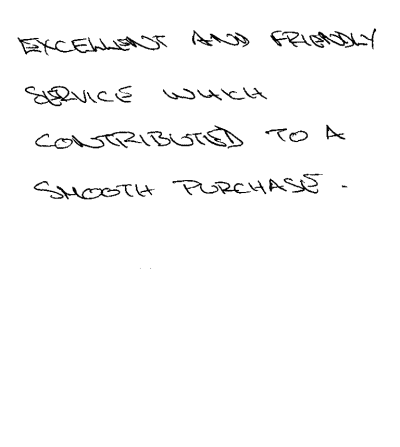 EXCELLENT AND FRIENDLY
SERVICE WHICH
CONTRIBUTED TO A
SMOOTH PURCHASE.